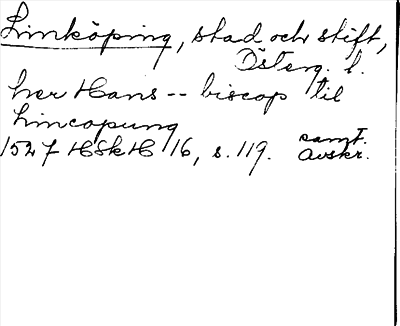 Linköping, stad och stift,
Österg. l.
her Hans -- biscop til
Lincopung
1527 HSkH 16, s. 119. samt. avskr.